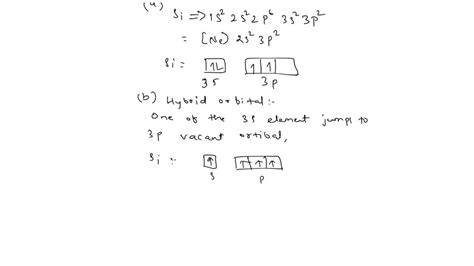 (a) Si => 1s² 2s² 2p⁶ 3s² 3p²
= [Ne) 2s² 3p²
Si = ↑↓ ↑ ↑
3s 3p
(b) Hybrid orbital:-
One of the 3s element jumps to
3p vacant ortibal,
Si :- ↑ ↑ ↑ ↑
s p